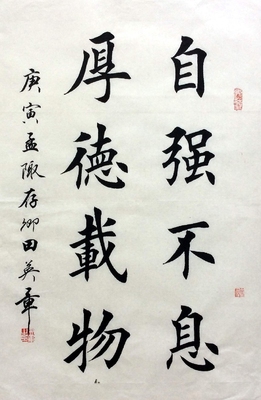 自强不息
厚德載物
庚寅孟陬存卿田英章